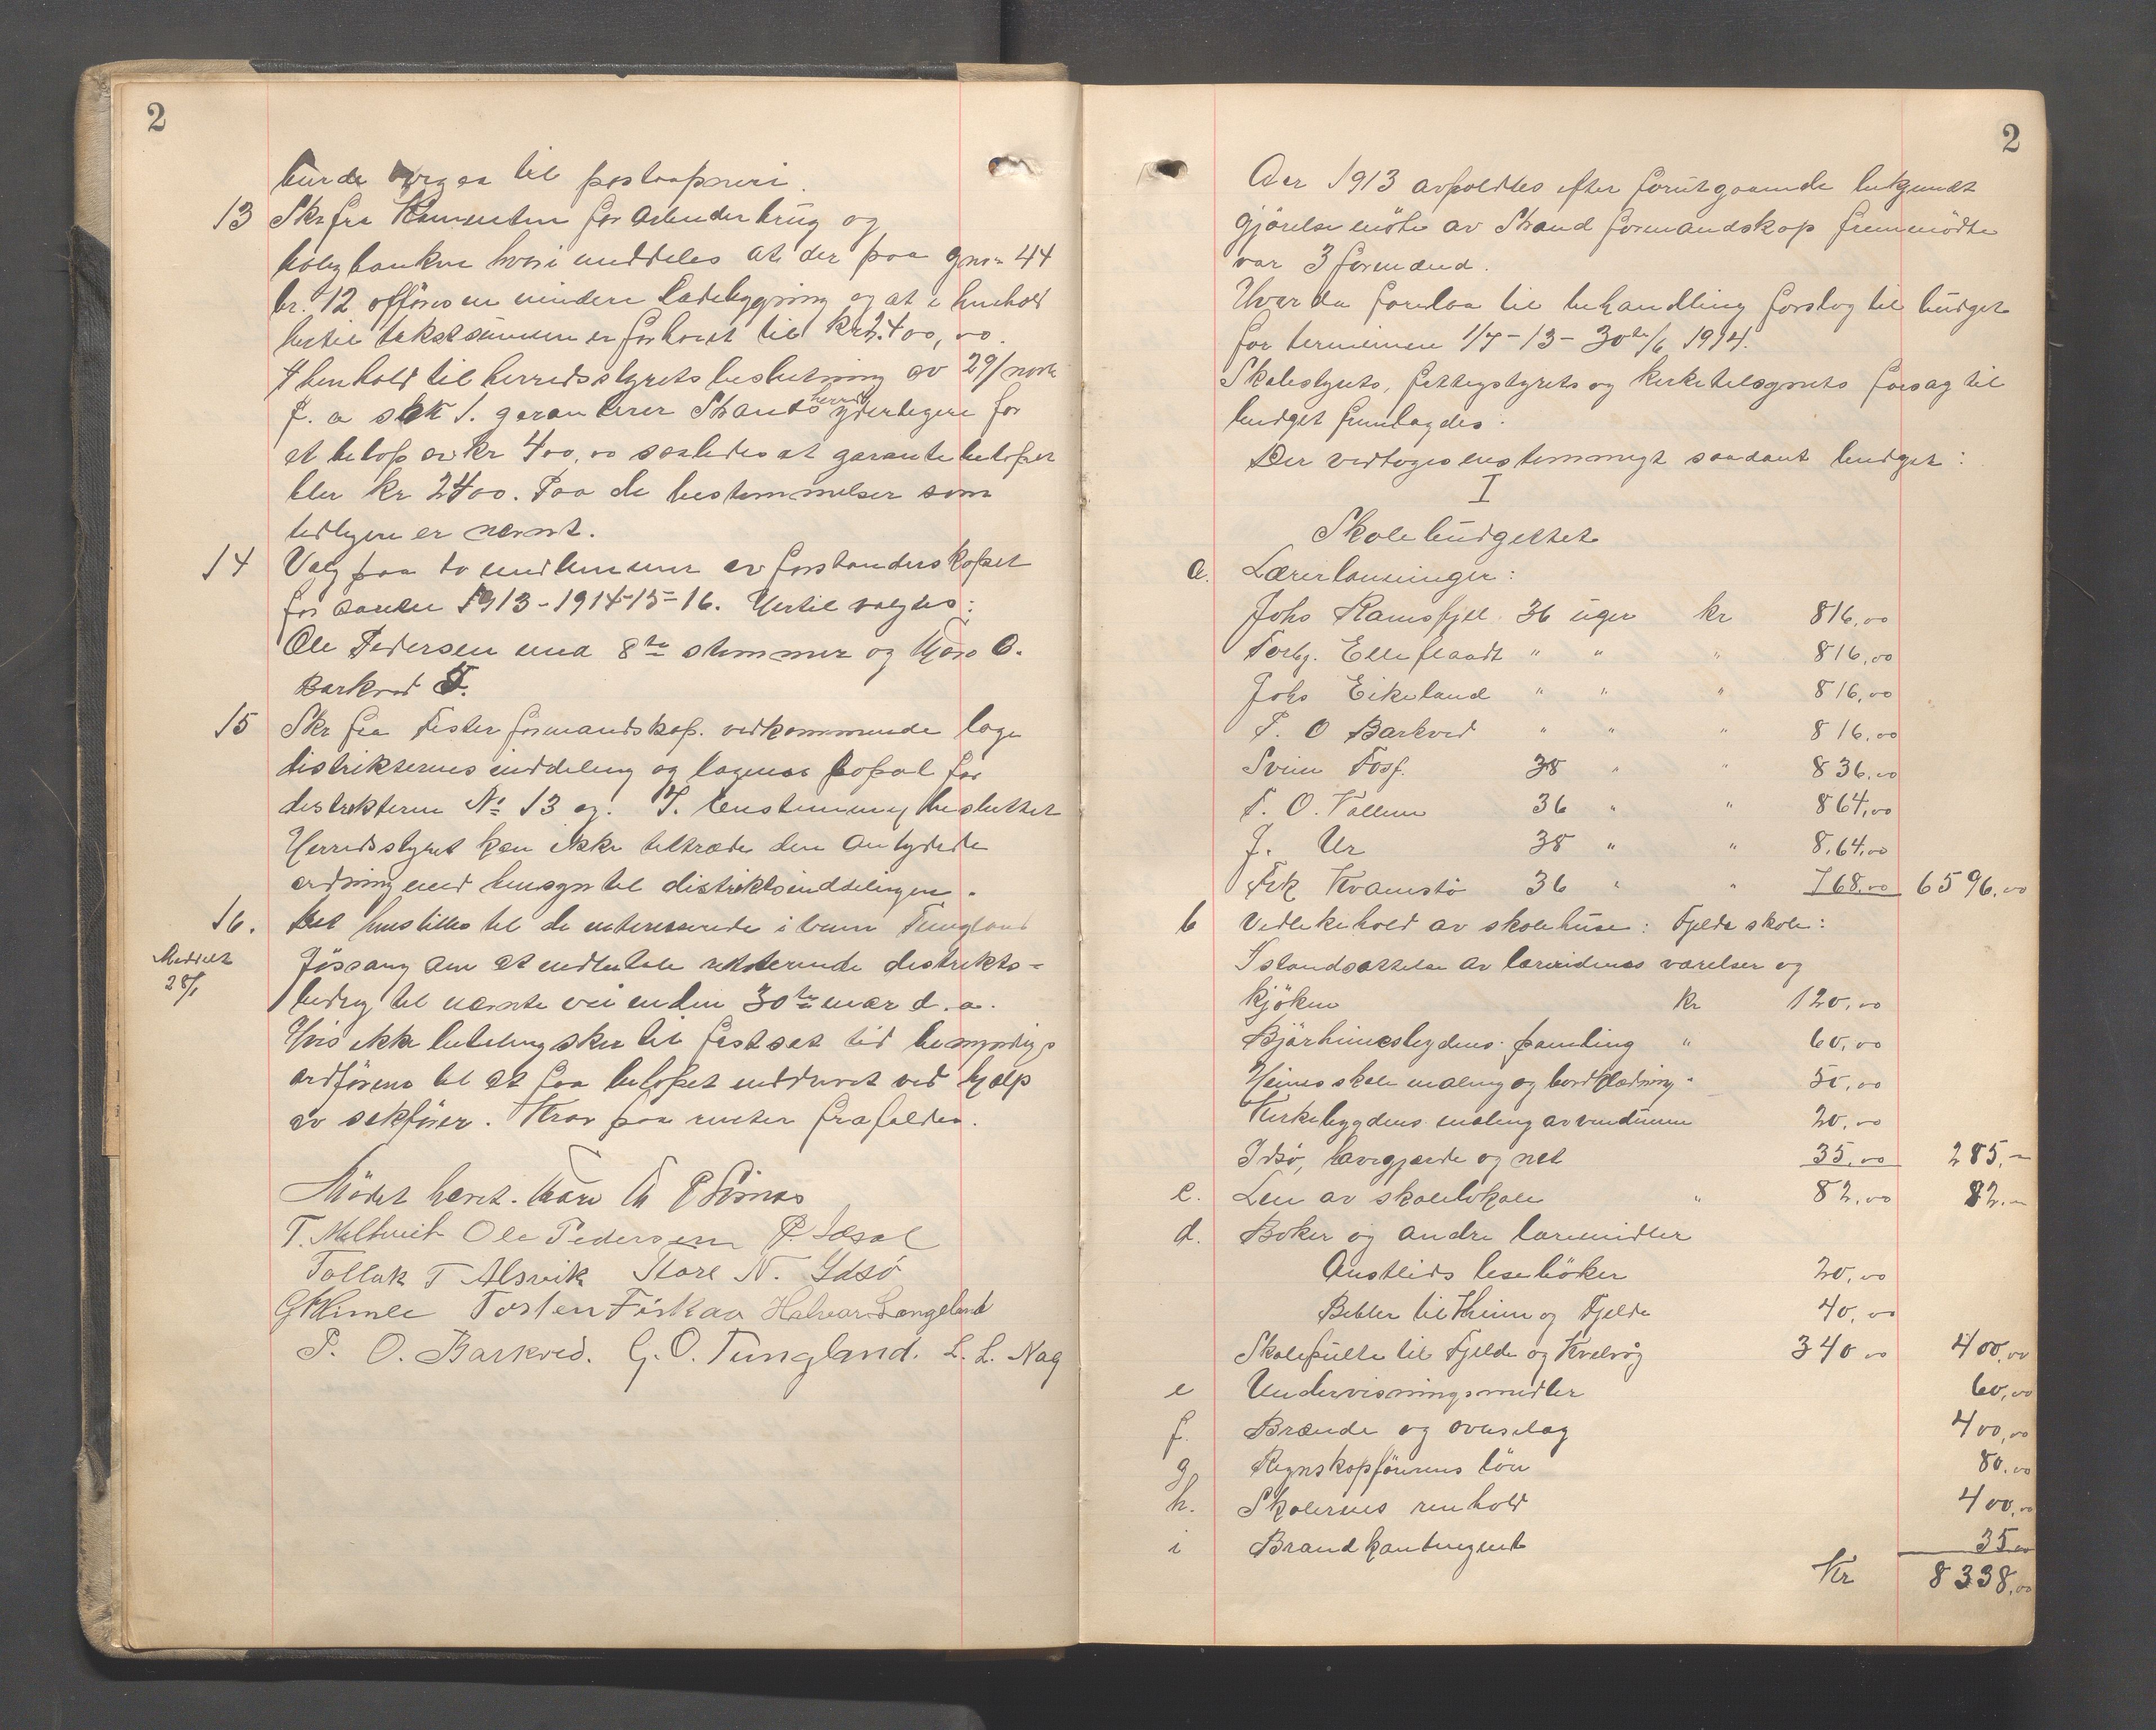 2
burde overgaa til postaapneri.
13 Skr fra Komenten for arbeiderbrug og
boligbanken hvori meddeles at der paa gno 44
br. 12 opföres en mindre ladebygning og at i henhold
hertil takstsummen er forhöiet til kr 2400,00.
I henhold til herredsstyrets beslutning av 29/
f. a sak 1. garanterer Strands herred yderligere for
et belöp av kr 400,00 saaledes at garantibelöpet
blir kr 2400. Paa de bestemmelser som
tidligere er nævnt.
14 Valg paa to medlemmer av forstanderskapet
for aarene 1913-1914-15-16. Hertil valgtes:
Ole Pedersen med 8 stemmer og O.
Barkved
15 Skr fra Jester formandskap. vedkommende lage
distrikternes inddeling og lagenes forhold for
distrikterne No 13 og Enstemmig besluttet
Herredsstyret kan ikke tiltræde den antydede
ordning med hensyn til distriktsinddelingen.
16. Det henstilles til de interesserede i veien Tungland
Meddelt 28/1
Jössang om at indbetale resterende distrikts-
bidrag til nævnte vei inden 30te mar d. a.
Hvis ikke betaling sker til fastsat tid bemyndiges
ordföreren til at faa belöpet inddrevet ved hjælp
av sakförer. Krav paa renter frafaldes.
Mödet hævet.
T. Meltveit Ole Pedersen P. Idsal
Tollak T Alsvik Kare N. Idsö
G Himle Torsten Fiskaa Halvar Langeland
P. O. Barkved. G. O. Tungland. L. L. Nag
2
Aar 1913 avholdtes efter forutgaaende bekjendt
gjörelse möte av Strand formandskap fremmödte
var 3 formænd.
Hvor da forelaa til behandling forslag til budget
for terminen 1/7-13-30te/6 1914.
Skolestyrets, fattigstyrets og kirketilsynets forslag til
budget fremlagdes.
Der vedtoges enstemmigt saadant budget:
I
Skolebudgettet
a. Lærerlönninger:
Johs Ramsfjell 36 uger kr 816,00
Torbj. Elleflaadt " " " 816,00
Johs Eikeland " " " 816,00
P. O Barkved " " " 816,00
Svein Fosf. 38 " " 836,00
T. O. Vallem 36 " " 864,00
J. Ur 38 " " 8.64,00
Frk Kvamstö 36 " " 768,00 6596,00
b Vedlikehold av skolehuse: Fjelde skole:
Istandsættelse av lærerindens værelser og
kjöken kr 120,00
Björheimsbygdens panling " 60,00
Heims skole maling og bordklædning " 50,00
Kirkebygdens maling av vinduer 20,00
Idsö, havegjærde og net 35,00 285,-
c. Leie av skolelokale " 82,00 82,-
d. Böker og andre læremidler
Anstlids læseböker 20,00
Bibler til Heim og Fjelde 40,00
Skolepulte til Fjelde og Kvalvåg 340 00 400,00
e Undervisningsmidler 60,00
f. Brænde og ovnslag 400,00
g. Regnskapsförerens lön 80,00
h. Skolernes renhold 400,00
i Brandkontingent 35,00
Kr 8338,00